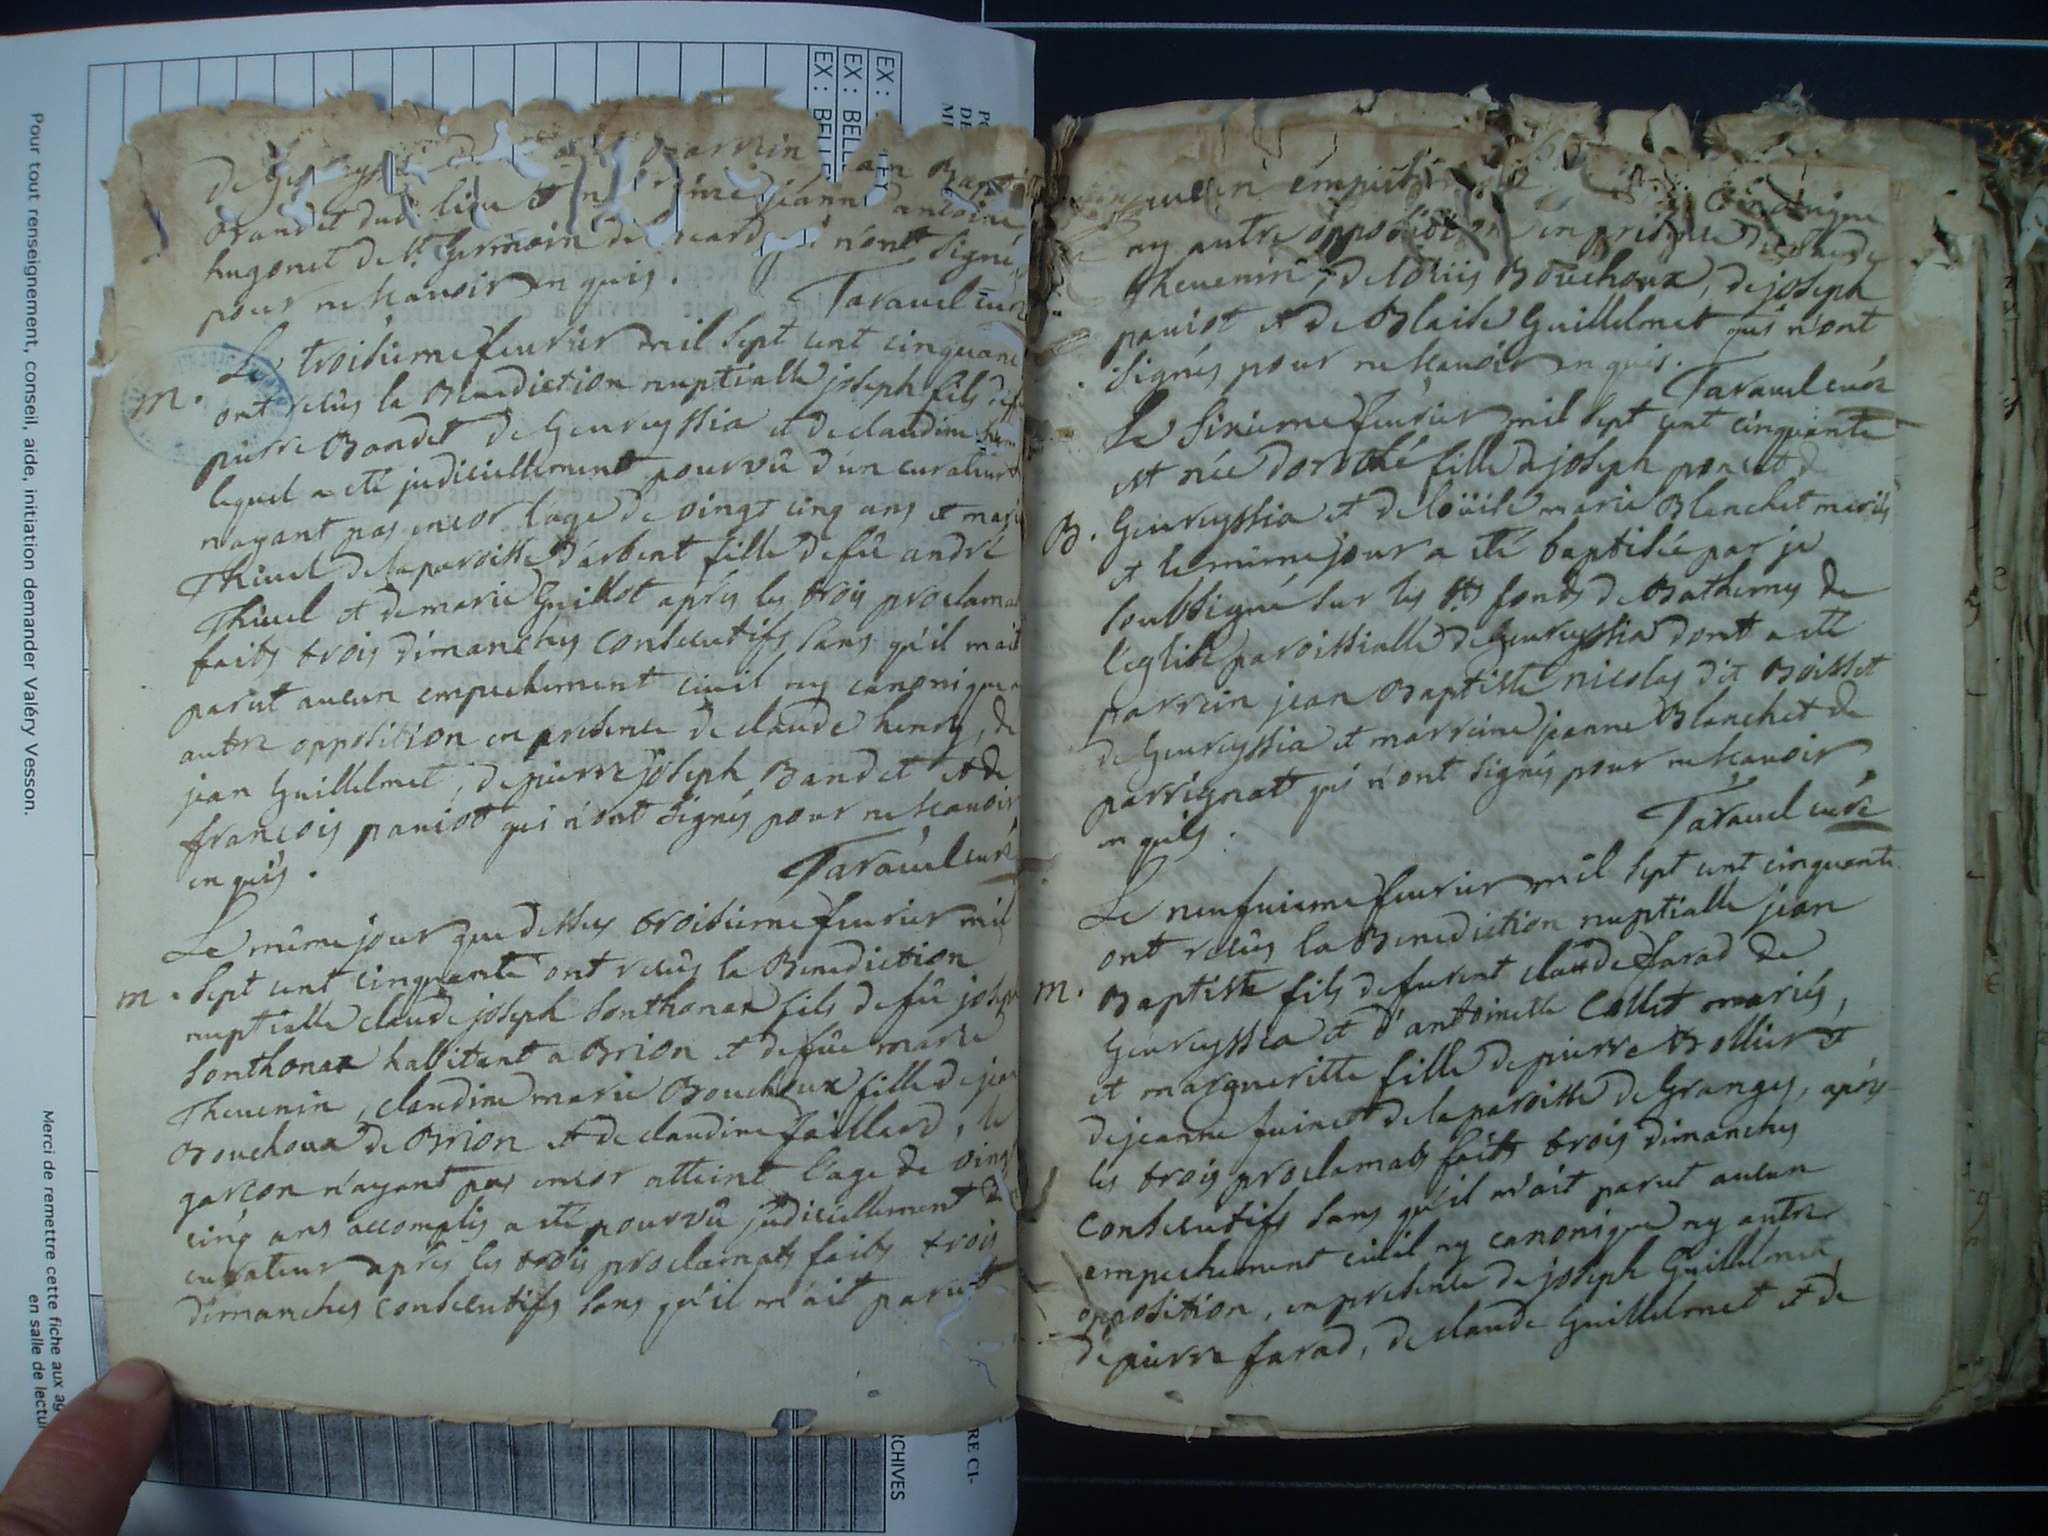 Pour tout renseignement, conseil, aide, initiation demander Valéry Vesson.
Merci de remettre cette fiche aux
en salle de
EX :
EX : BELLE
EX : BELLE
ARCHIVES
parrin Bapt
Bandet dud lieu et jeanne antoine
hugonet de St Germain de n'ont signé
pour ne scavoir enquis.
Taravel curé
m.
Le troisieme fevrier mil sept cent cinquante
ont reçûs la Benediction nuptialle joseph fils de
pierre Bandet de Geureyssia et de claudine
lequel a eté judiciellement pourvû d'un curateur
nayant pas encor l'age de vingt cinq ans et marie
Thivel de la paroisse d'arbent fille de fû andré
Thivel et de marie Guillot aprés les trois proclamats
faits trois dimanches consecutifs sans qu'il m'ait
parut aucun empechement civil ny canonique
autre opposition en presence de claude henry, de
jean Guillelmet, de pierre joseph Bandet et de
françois paniot qui n'ont signés pour ne scavoir
enquis.
Taravel curé
Le même jour que dessus troisieme fevrier mil
m. sept cent cinquante ont reçûs la Benediction
nuptialle claude joseph Sonthonax fils de fû joseph
Sonthonax habitant a Brion et de fûe marie
Thevenin, claudine marie Bouchoux fille de jean
Bouchoux de Brion et de claudine faillard, le
garçon n'ayant pas encor atteint l'age de vingt
cinq ans accomplis a eté pourvû judiciellement de
curateur aprés les trois proclamats faits trois
dimanches consecutifs sans qu'il m'ait parut
aucun empech
ny autre opposition en presence de claude
Thevenin, de loüis Bouchoux, de joseph
paniot et de Blaise Guillelmet qui n'ont
signés pour ne scavoir enquis.
Taravel curé
Le sixieme fevrier mil sept cent cinquante
est née dorothé fille de joseph poncet de
B. Geureyssia et de loüise marie Blanchet mariés
et le même jour a eté baptisée par je
soubsigné sur les sts fonds de Bathemes de
l'eglise paroissialle de Geureyssia dont a eté
parrein jean Baptiste nicolas dit Boisset
de Geureyssia et marreine jeanne Blanchet de
parrignat qui n'ont signés pour ne scavoir
enquis.
Taravel curé
Le neufvieme fevrier mil sept cent cinquante
ont reçûs la Benediction nuptialle jean
m. Baptiste fils de furent claude farad de
Geureyssia et d'antoinette Collet mariés,
et margueritte fille de pierre Bollier et
de jeanne fuinet de la paroisse de Granges, aprés
les trois proclamats faits trois dimanches
consecutifs sans qu'il m'ait parut aucun
empechement civil ny canonique ny autre
opposition, en presence de joseph Guillelmet,
de pierre farad, de claude Guillelmet et de